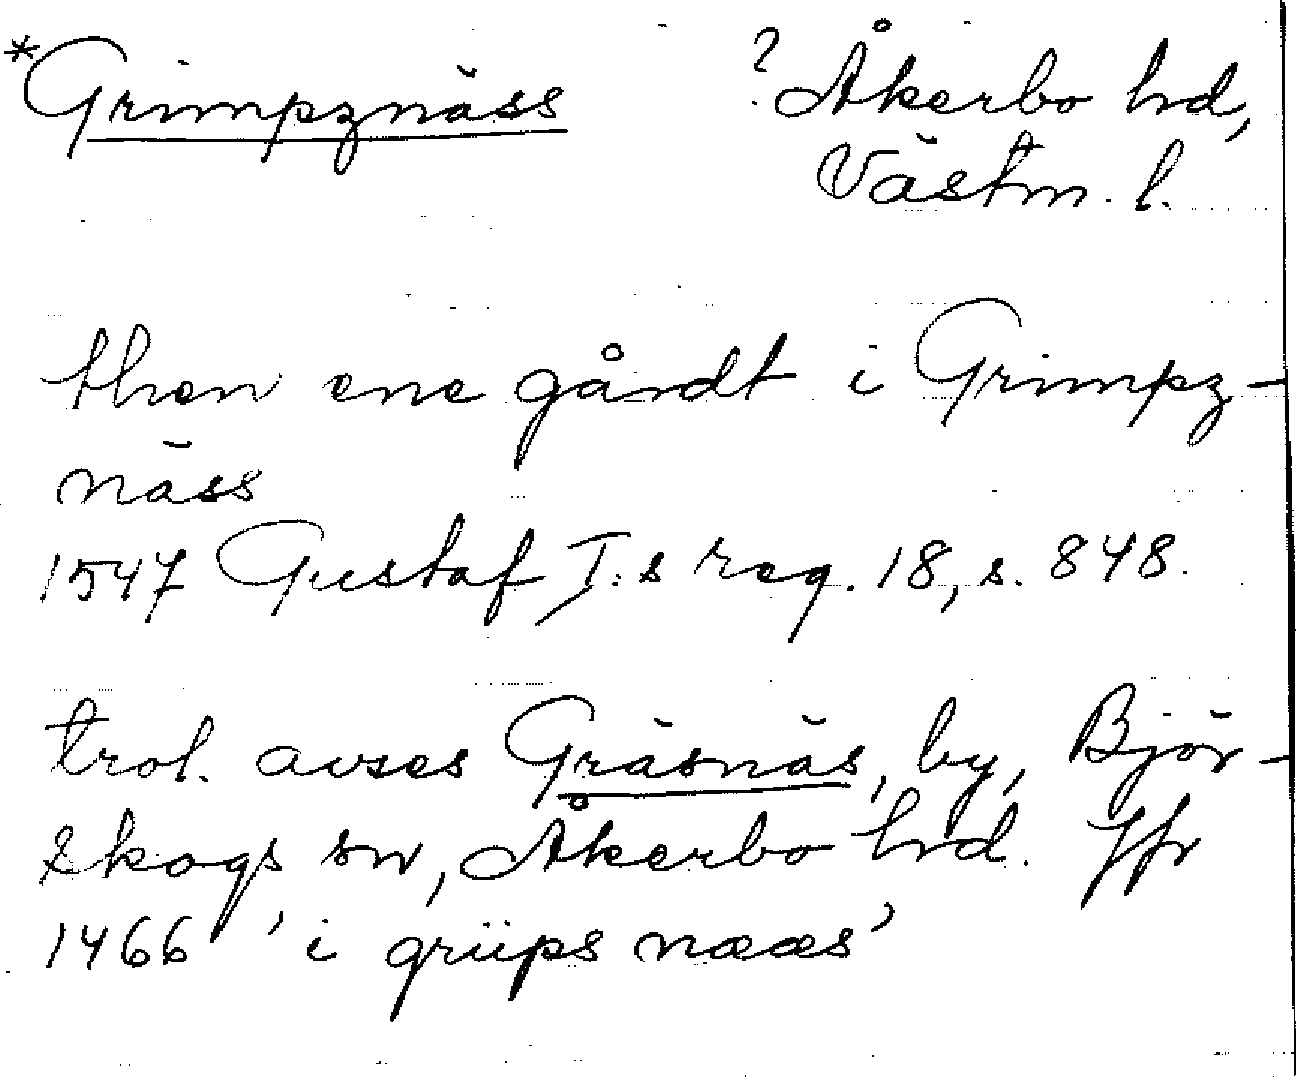 *Grimpznäss ? Åkerbo hd,
Västm. l.
then ene gårdt i Grimpz-
näss
1547 Gustaf I:s reg. 18, s. 848.
trol. avses Gräsnäs, by, Björ-
skogs sn, Åkerbo hd. Jfr
1466 'i griips nææs'